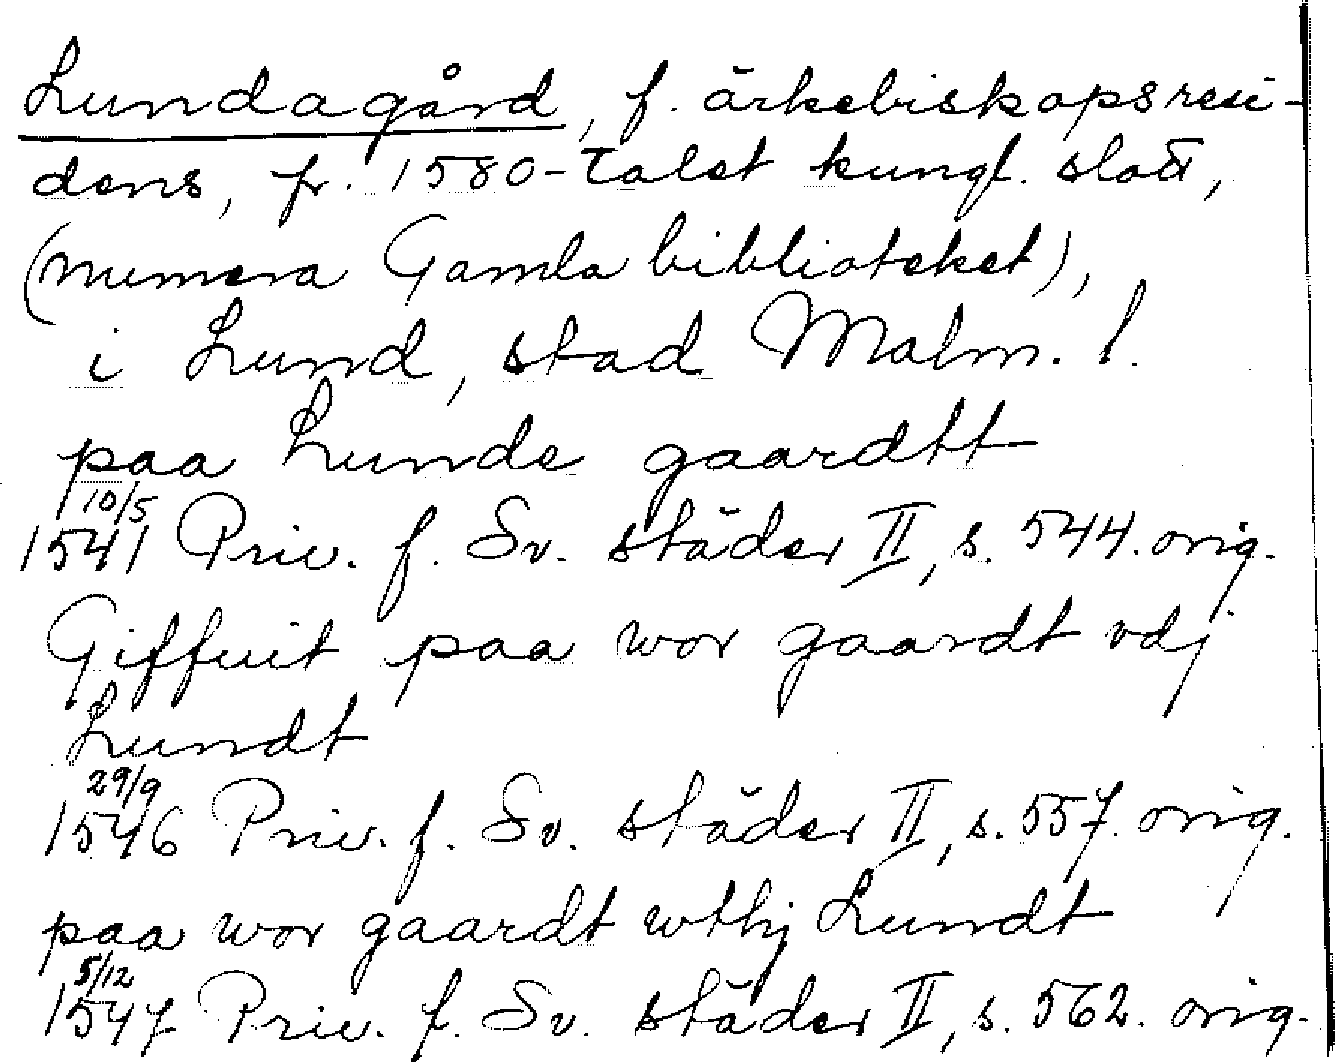 Lundagård, f. ärkebiskopsresi-
dens, fr. 1580-talet kungl. slott,
(numera Gamla biblioteket),
i Lund, stad Malm. l.
paa Lunde gaardtt
10/5
1541 Priv. f. Sv. städer II, s. 544. orig.
Giffuit paa wor gaardt vdj
Lundt
29/9
1546 Priv. f. Sv. städer II, s. 557. orig.
paa wor gaardt wthj Lundt
5/12
1547 Priv. f. Sv. städer II, s. 562. orig.